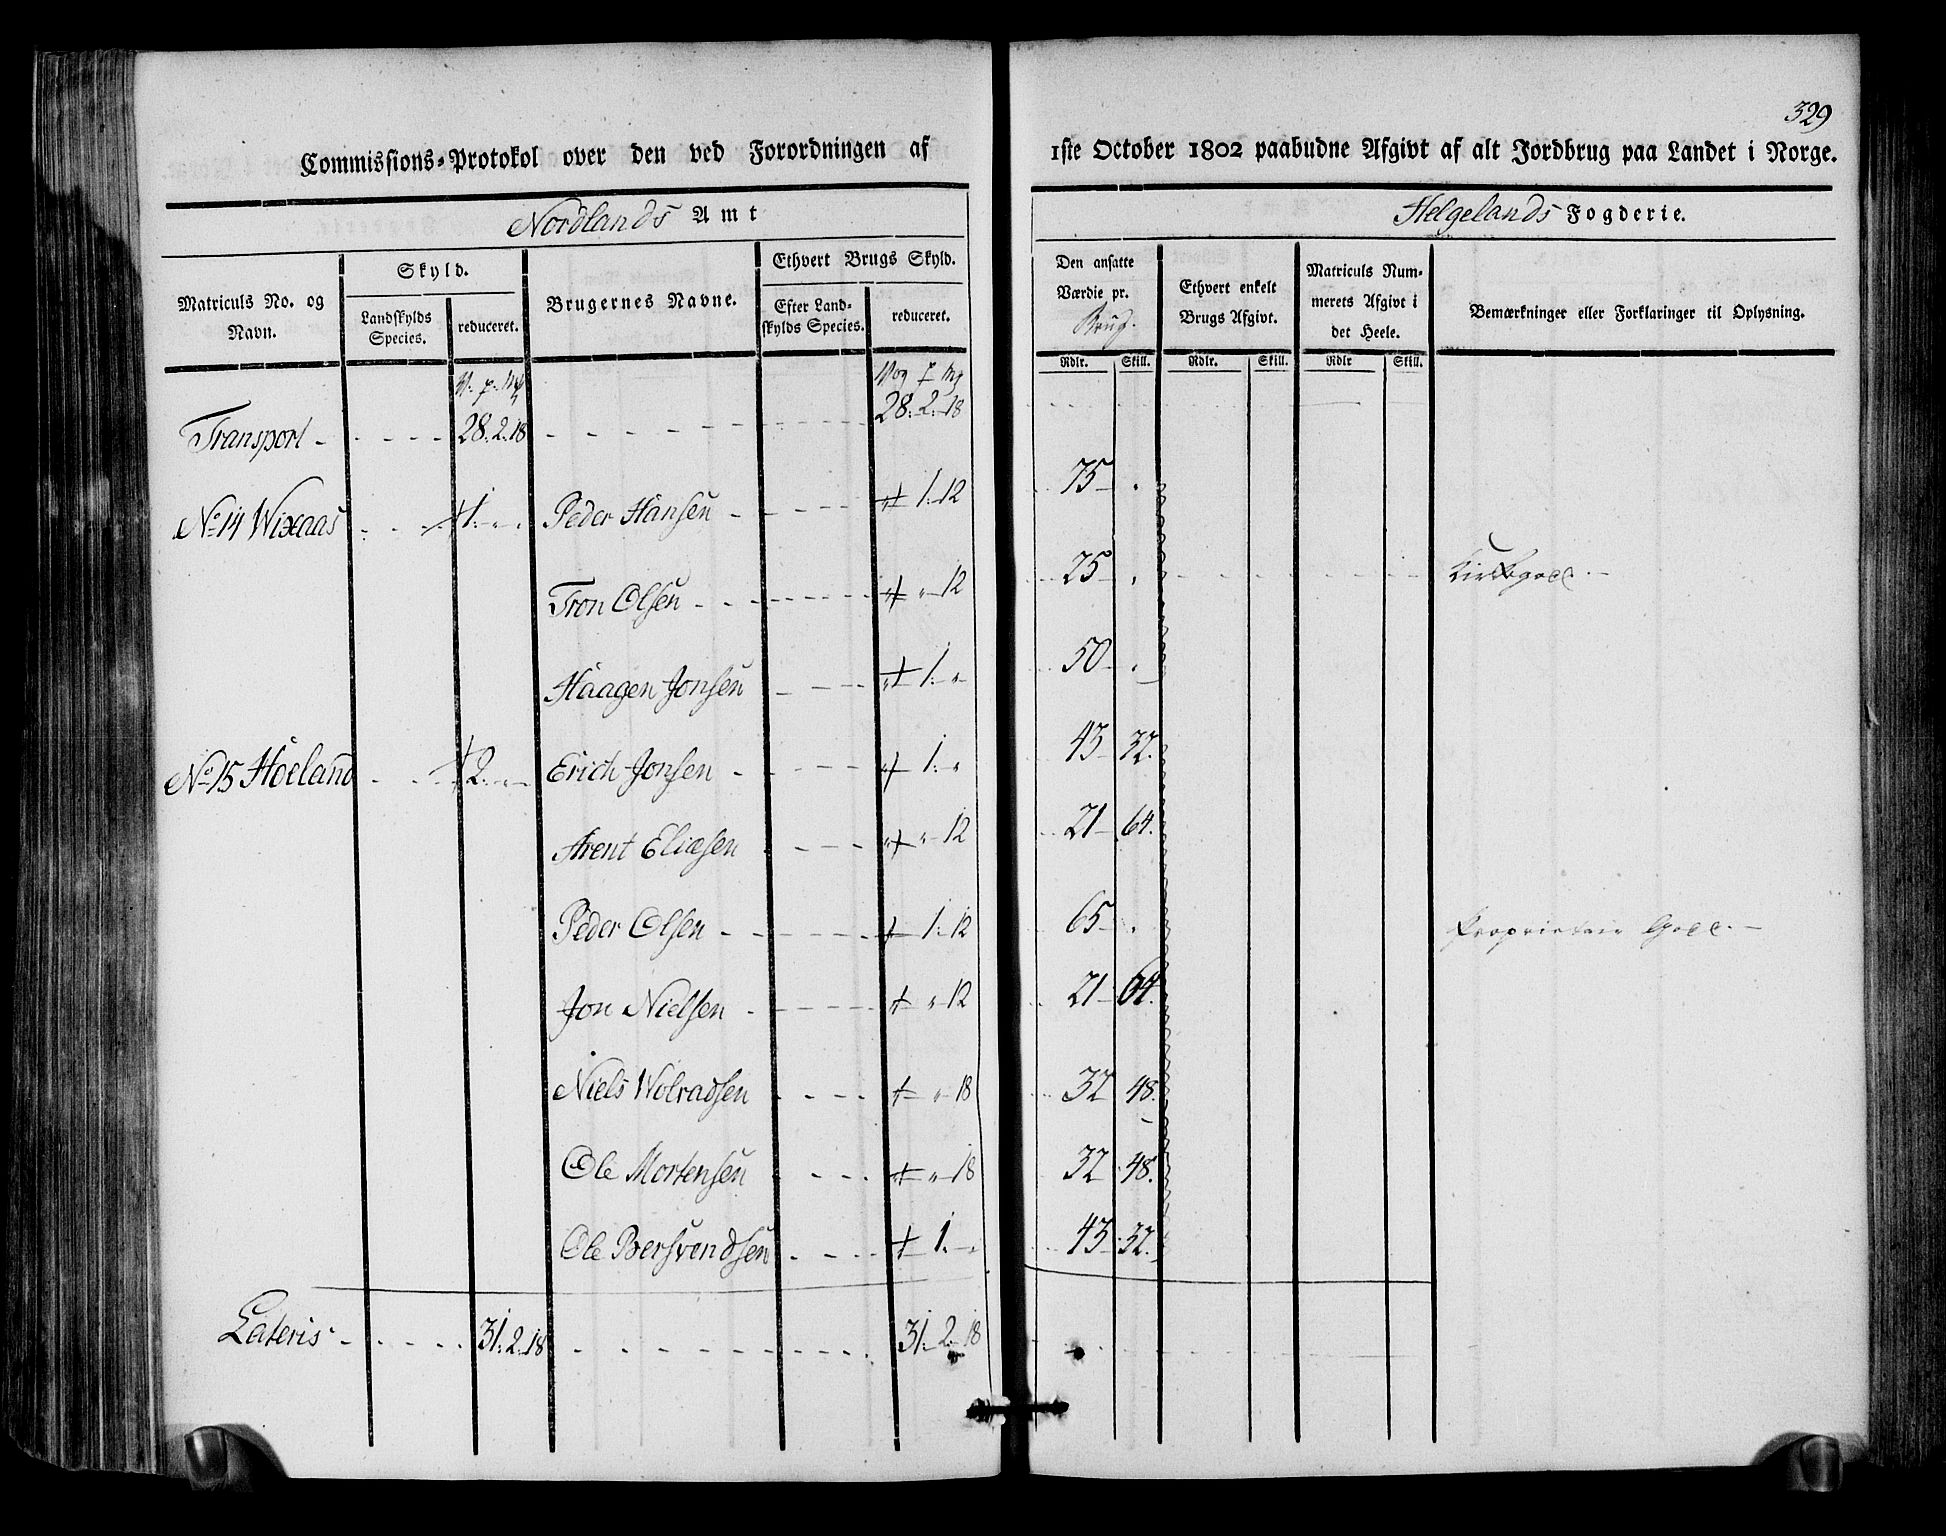 329
Commissions-Protokol over den ved Forordningen af 1ste October 1802 paabudne Afgivt af alt Jordbrug paa Landet i Norge.
Nordlands Amt Helgelands Fogderie.
Matriculs No. og Navn.
Skyld.
Landskylds Species.
reduceret.
Brugernes Navne.
Ethvert Brugs Skyld.
Efter Landskylds Species.
reduceret.
Den ansatte Værdie pr. Brug.
Ethvert enkelt Brugs Afgivt.
Matriculs Nummerets Afgivt i det Heele.
Bemærkninger eller Forklaringer til Oplysning.
Rdlr. Skill. Rdlr. Skill. Rdlr Skill.
V. p. Mk Vog p Mk
Transport - 28. 2. 18 28. 2. 18
No 14 Wixaas 1. Peder Hansen 1. 12 75
Tron Olsen 12 25 Kirkegods.
Haagen Jonsen 1. 50
No 15 Höeland 2. Erich Jonsen 1. 43 32.
Arent Eliæsen 12 21 64.
Peder Olsen 1. 12 65 Proprietair Gods.
Jon Nielsen 12 21 64.
Niels Wolradsen 18 32 48.
Ole Mortensen 18 32 48.
Ole Bersvendsen 1. 43 32.
Lateris 31. 2. 18 31. 2. 18